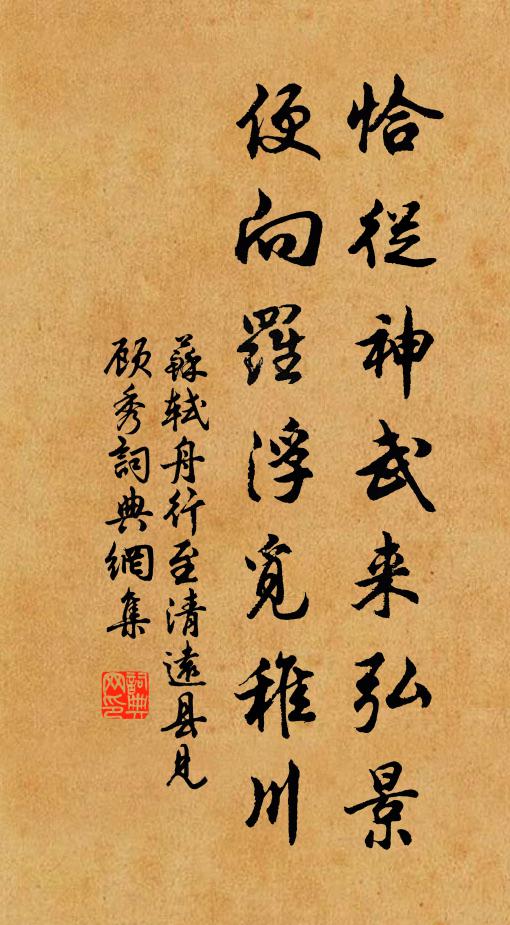 恰從神武来弘景
便向羅浮覓稚川
蘇軾舟行至清遠县见
顾秀詞典網集
詞典网印